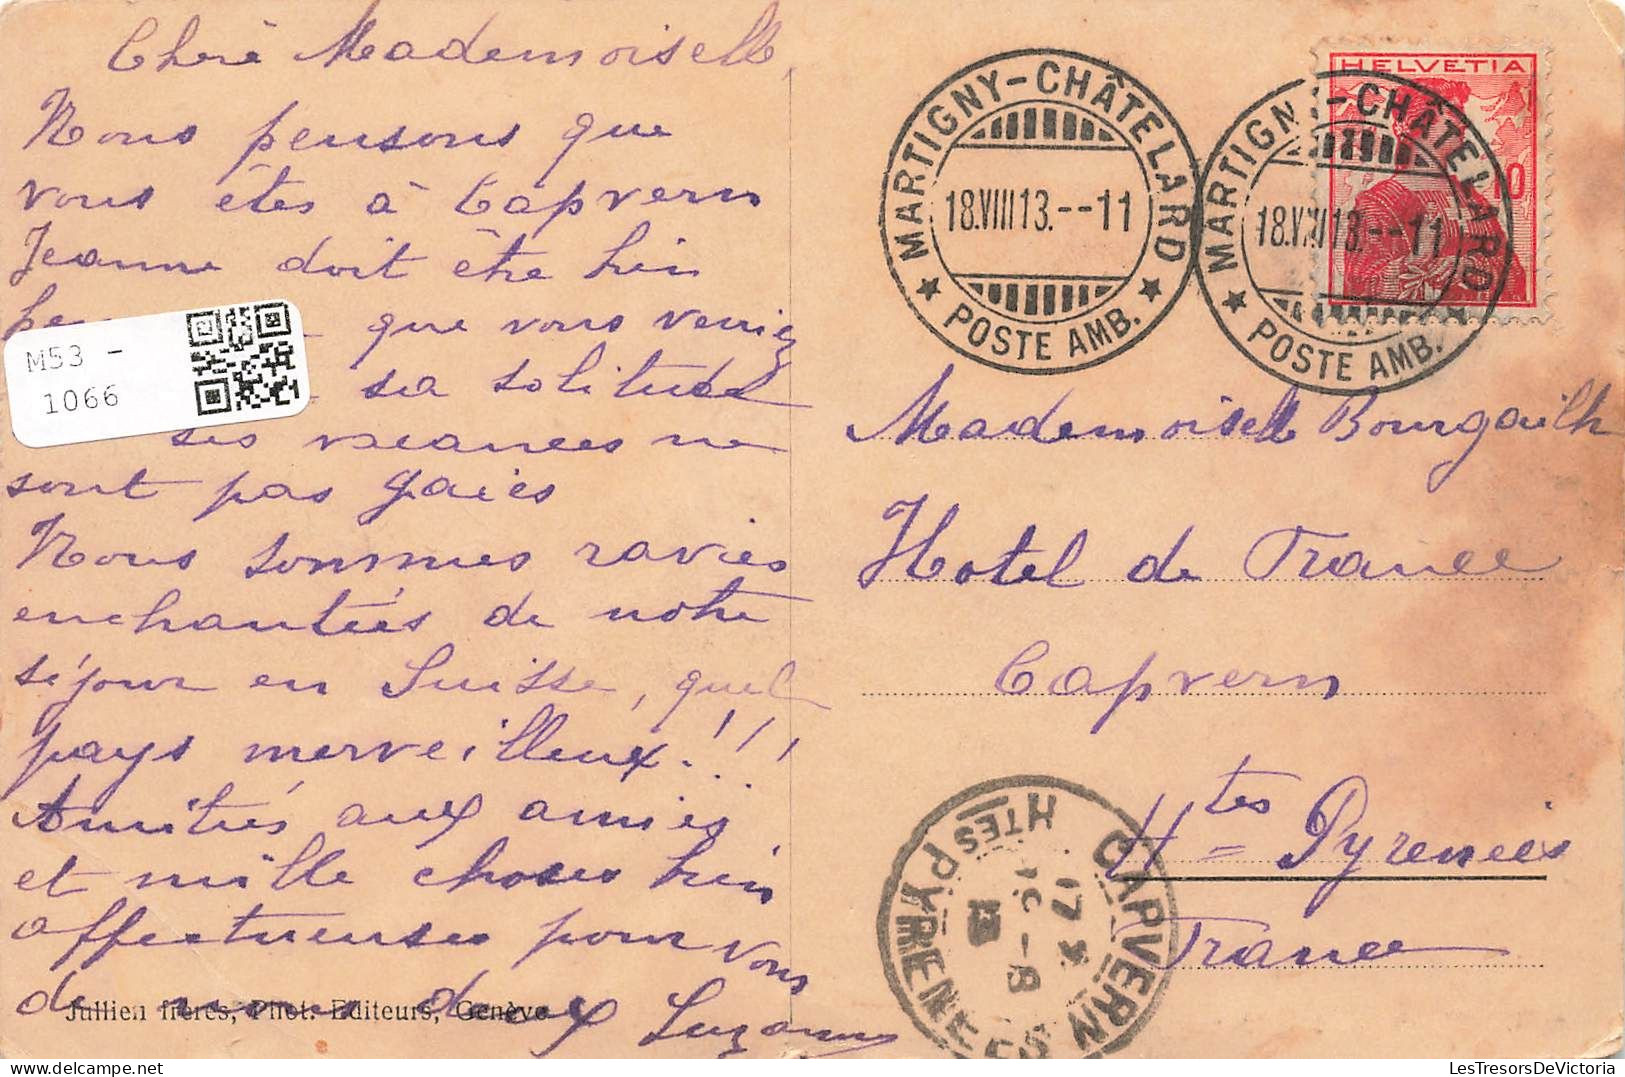 Chère Mademoiselle,
Nous pensons que
vous êtes à Capvern
Jeanne doit être bien
que vous veniez
sa solitude
ses vacances ne
sont pas gaies
Nous sommes ravies
enchantées de notre
séjour en Suisse, quel
pays merveilleux!!!
Amitiés aux amies
et mille choses bien
affectueuses pour vous
de nous deux Suzanne
Jullien frères, Phot. Editeurs, Genève
M53 -
1066
HELVETIA
10
MARTIGNY-CHÂTELARD
18.VIII13.--11
POSTE AMB.
MARTIGNY-CHÂTELARD
18.VIII13.--11
POSTE AMB.
Mademoiselle Bourgailh
Hotel de France
Capvern
Htes Pyrénées
France
CAPVERN
HTES PYRENEES
LesTresorsDeVictoria.com